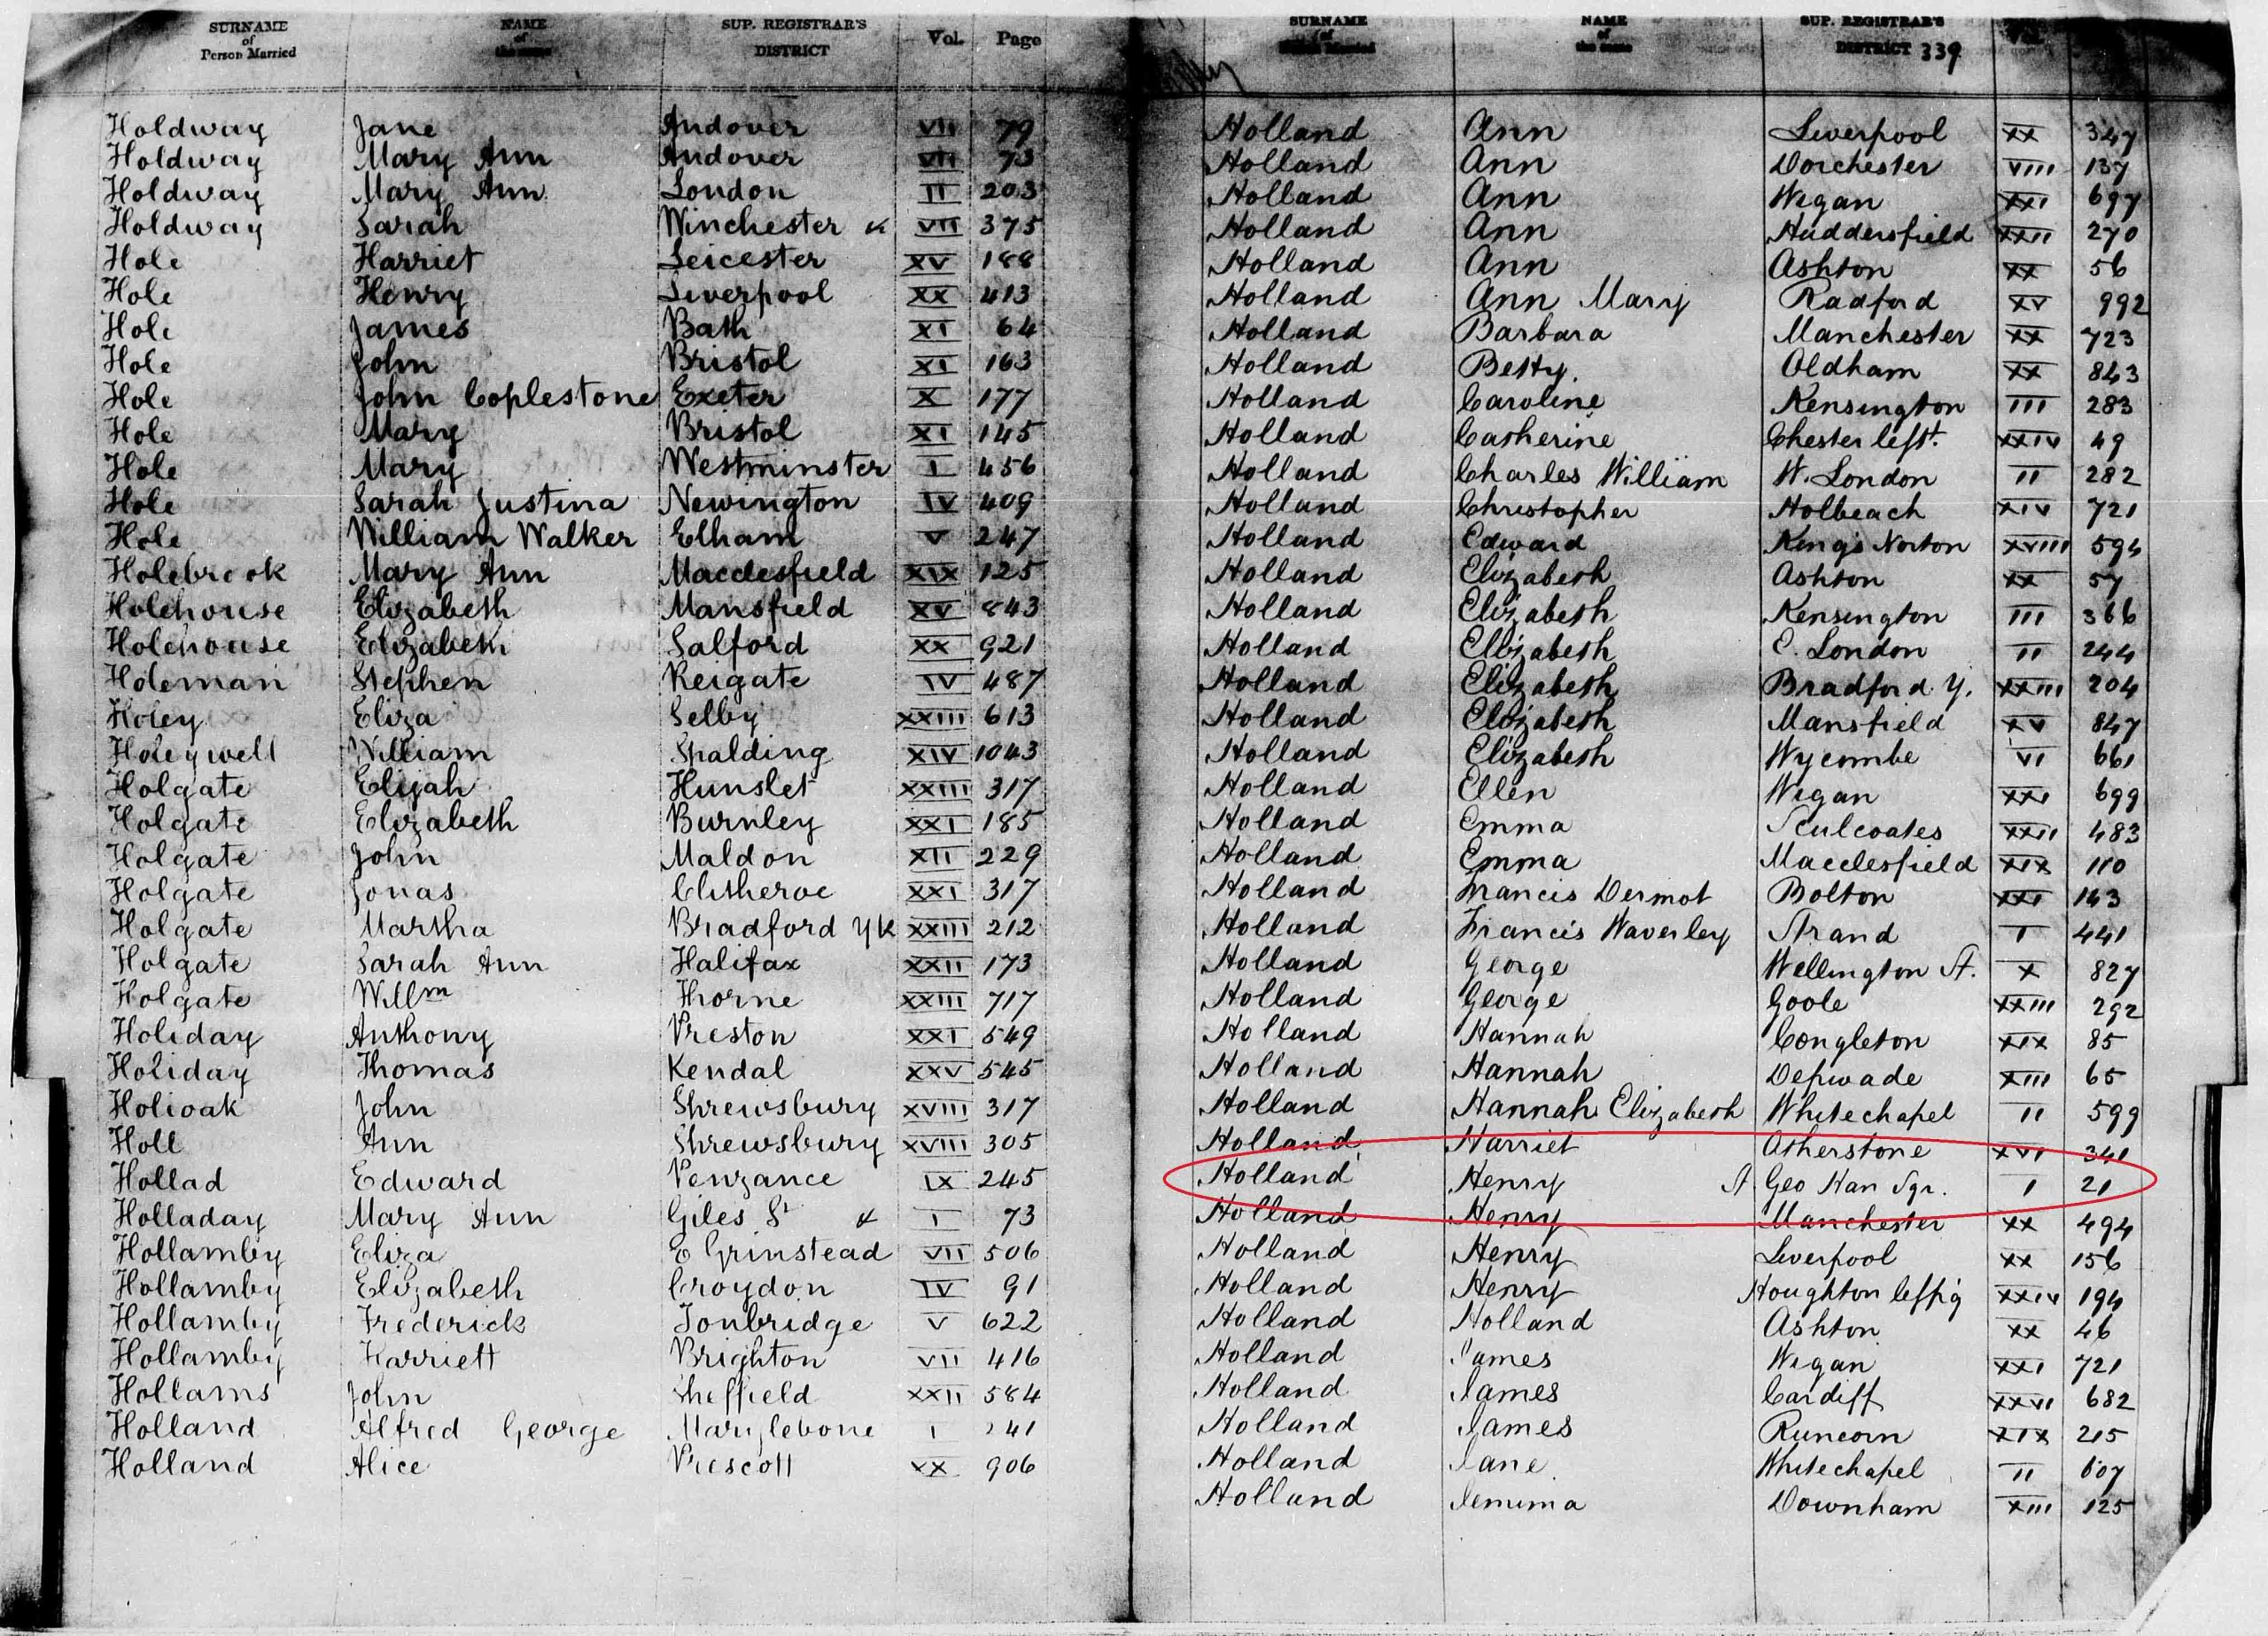 SURNAME of Person Married NAME of the same SUP. REGISTRAR'S DISTRICT Vol. Page
Holdway Jane Andover VII 79
Holdway Mary Ann Andover VII 73
Holdway Mary Ann London II 203
Holdway Sarah Winchester VII 375
Hole Harriet Leicester XV 188
Hole Henry Liverpool XX 413
Hole James Bath XI 64
Hole John Bristol XI 163
Hole John Coplestone Exeter X 177
Hole Mary Bristol XI 145
Hole Mary Westminster I 456
Hole Sarah Justina Newington IV 409
Hole William Walker Elham V 247
Holebrook Mary Ann Macclesfield XIX 125
Holehouse Elizabeth Mansfield XV 843
Holehouse Elizabeth Salford XX 921
Holeman Stephen Reigate IV 487
Holey Eliza Selby XXIII 613
Holeywell William Spalding XIV 1043
Holgate Elijah Hunslet XXIII 317
Holgate Elizabeth Burnley XXI 185
Holgate John Maldon XII 229
Holgate Jonas Clitheroe XXI 317
Holgate Martha Bradford Yk XXIII 212
Holgate Sarah Ann Halifax XXII 173
Holgate Willm Thorne XXIII 717
Holiday Anthony Preston XXI 549
Holiday Thomas Kendal XXV 545
Holioak John Shrewsbury XVIII 317
Holl Ann Shrewsbury XVIII 305
Hollad Edward Penzance IX 245
Holladay Mary Ann Giles St I 73
Hollamby Eliza E Grinstead VII 506
Hollamby Elizabeth Croydon IV 91
Hollamby Frederick Tonbridge V 622
Hollamby Harriett Brighton VII 416
Hollams John Sheffield XXII 584
Holland Alfred George Marylebone I 241
Holland Alice Prescott XX 906
SURNAME of Person Married NAME of the same SUP. REGISTRAR'S DISTRICT 339
Holland Ann Liverpool XX 347
Holland Ann Dorchester VIII 137
Holland Ann Wigan XXI 697
Holland Ann Huddersfield XXII 270
Holland Ann Ashton XX 56
Holland Ann Mary Radford XV 992
Holland Barbara Manchester XX 723
Holland Betty. Oldham XX 843
Holland Caroline Kensington III 283
Holland Catherine Chester le St. XXIV 49
Holland Charles William W. London II 282
Holland Christopher Holbeach XIV 721
Holland Edward Kings Norton XVIII 594
Holland Elizabeth Ashton XX 57
Holland Elizabeth Kensington III 366
Holland Elizabeth E. London II 244
Holland Elizabeth Bradford Y. XXIII 204
Holland Elizabeth Mansfield XV 847
Holland Elizabeth Wycombe VI 661
Holland Ellen Wigan XXI 699
Holland Emma Sculcoates XXII 483
Holland Emma Macclesfield XIX 110
Holland Francis Dermot Bolton XXI 143
Holland Francis Waverley Strand I 441
Holland George Wellington St. X 827
Holland George Goole XXIII 292
Holland Hannah Congleton XIX 85
Holland Hannah Depwade XIII 65
Holland Hannah Elizabeth Whitechapel II 599
Holland Harriet Atherstone XVI 341
Holland Henry St Geo Han Sqr. I 21
Holland Henry Manchester XX 494
Holland Henry Liverpool XX 156
Holland Henry Houghton le Spg XXIV 194
Holland Holland Ashton XX 46
Holland James Wigan XXI 721
Holland James Cardiff XXVI 682
Holland James Runcorn XIX 215
Holland Jane Whitechapel II 607
Holland Jemima Downham XIII 125